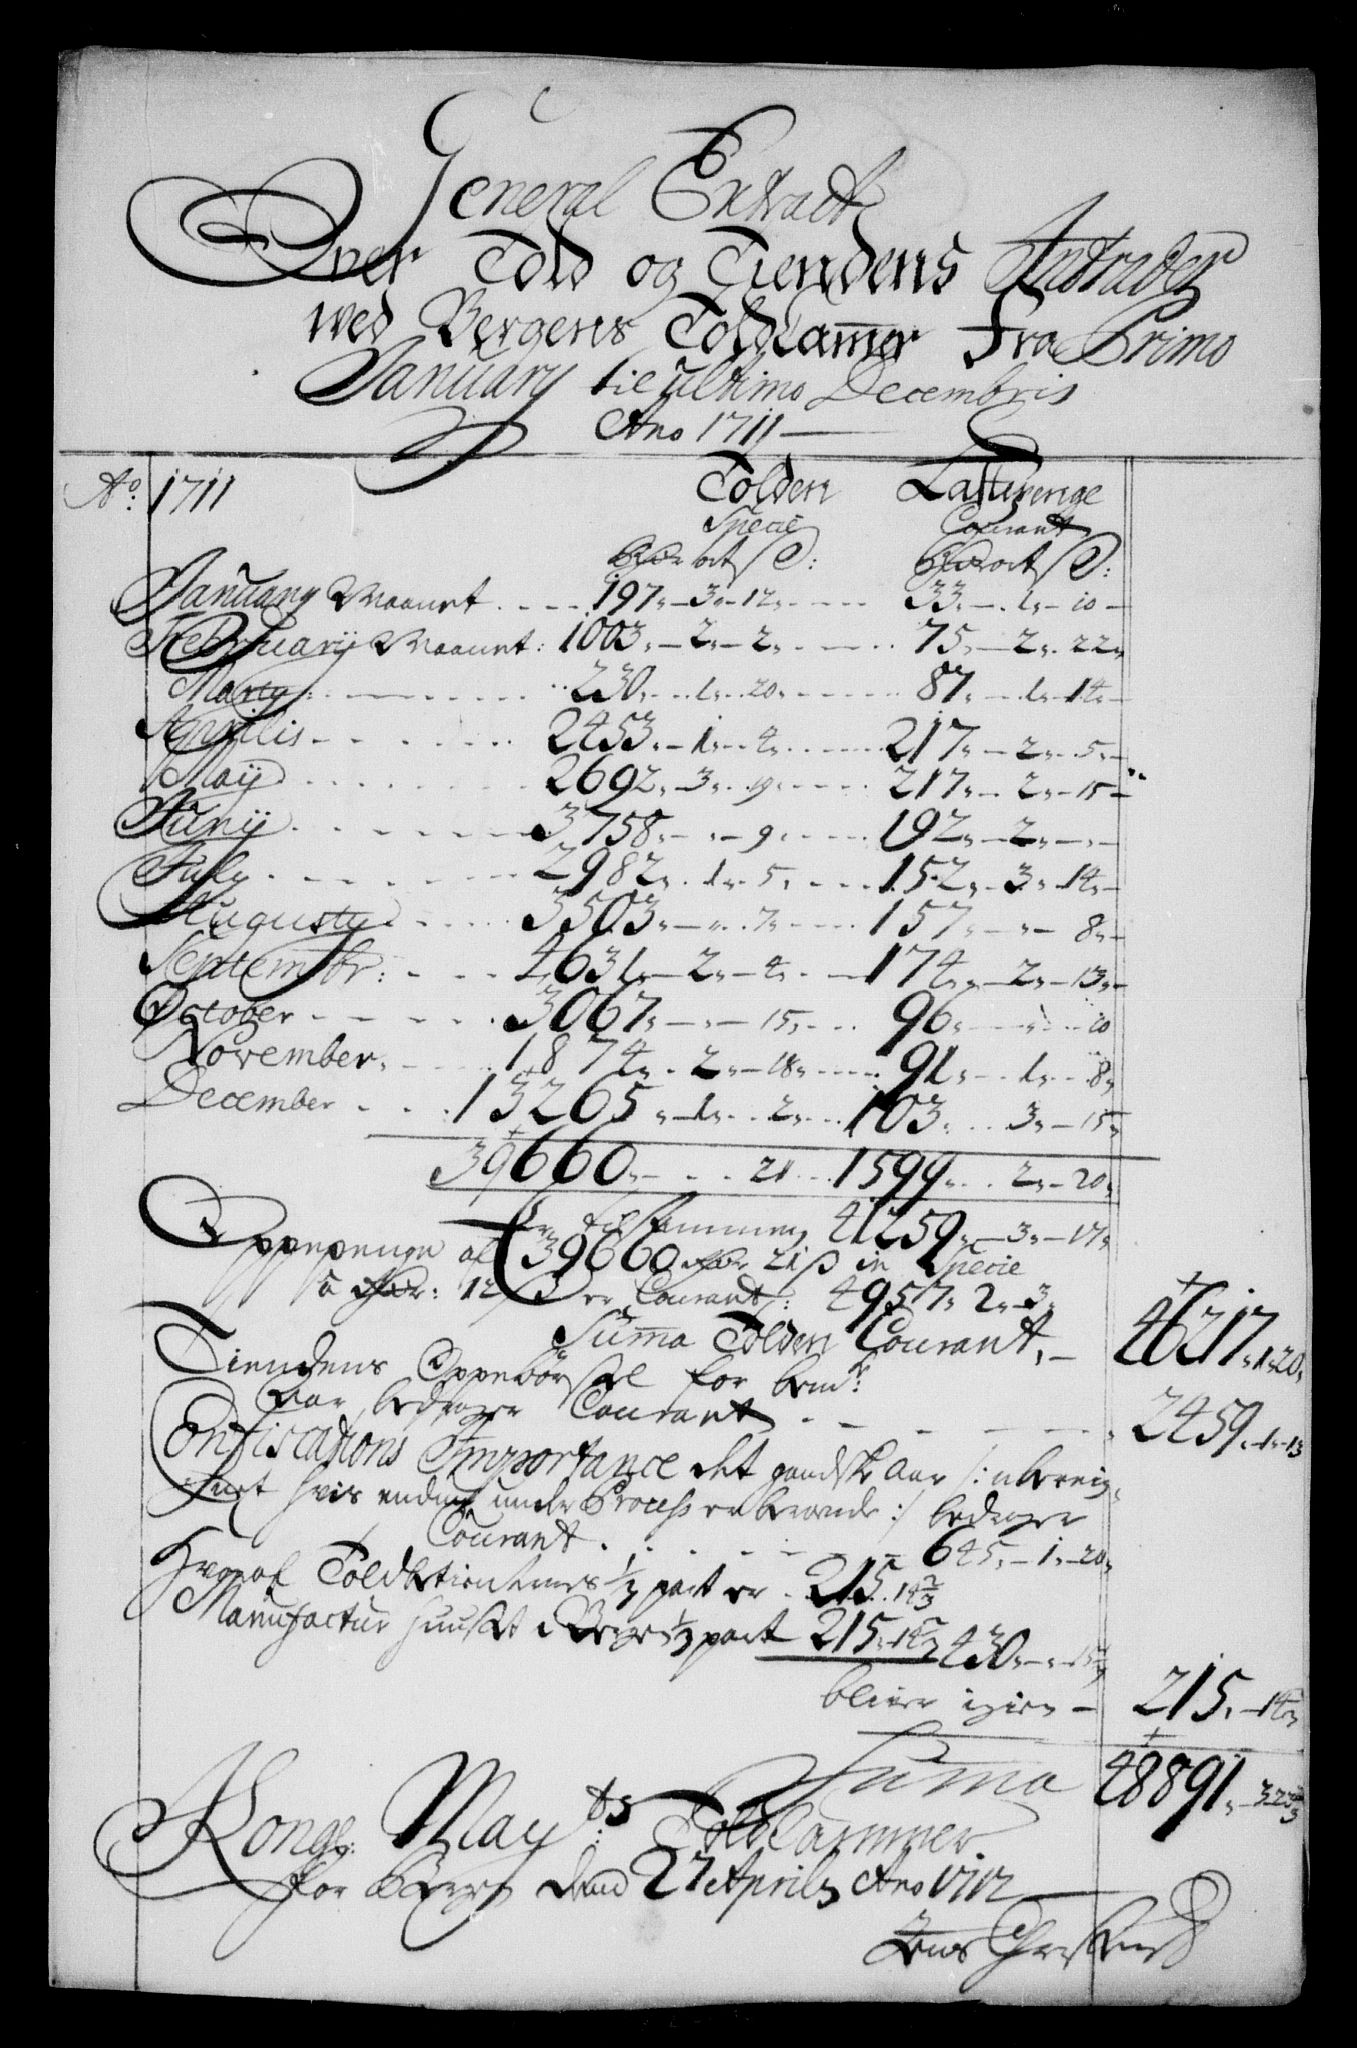 General Extract
Over Told og Tiendens Intrader
wed Bergens Toldkamer Fra Primo
January til Ultimo Decembris
Ano 1711
Ao: 1711 Tolden Lastepenge
Specie Courant
Rdr ort ß: Rdr ort ß:
January Maanet 197 3 12 33 1 10
February Maanet: 1003 2 2 75 2 22
Marty: 230 1 20 87 1 14
Aprilis 2453 1 4 217 2 5
May 2692 3 9 217 2 15
Juny 3758 " 9 192 2 "
July 2982 1 5 152 3 14
Augusty 3503 " 7 157 " 8
Septembr: 4631 2 4 174 2 13
October 3067 " 15 96 " 10
November 1874 2 18 91 1 8
December 13265 1 2 103 3 15
39660 " 21 1599 2 20
Er tilsammen 41259 3 17
Oppepenge af 39660 rdr 21 ß in Specie
a rdr: 12 ß er Courant: 4957 2 3
Suma Tolden Courant 46217 1 20
Tiendens Oppebørsel for bemte
Aar bedrager Courant 2459 1 13
Confiscations Importance det gandske Aar /: ubereig-
net hvis endnu under Process er beroende :/ bedrager
Courant 645 1 20
Hvoraf Toldbetienternes 1/3 part er 215 " 14 2/3
Manufactur Huuset i Bergen 1/3 part 215 " 14 2/3 430 "
blier igien 215 " 14 2/3
Suma 48891 3
Kongl: Mayts: Toldkammer
for Bergen dend 27 Aprily Ano 1712